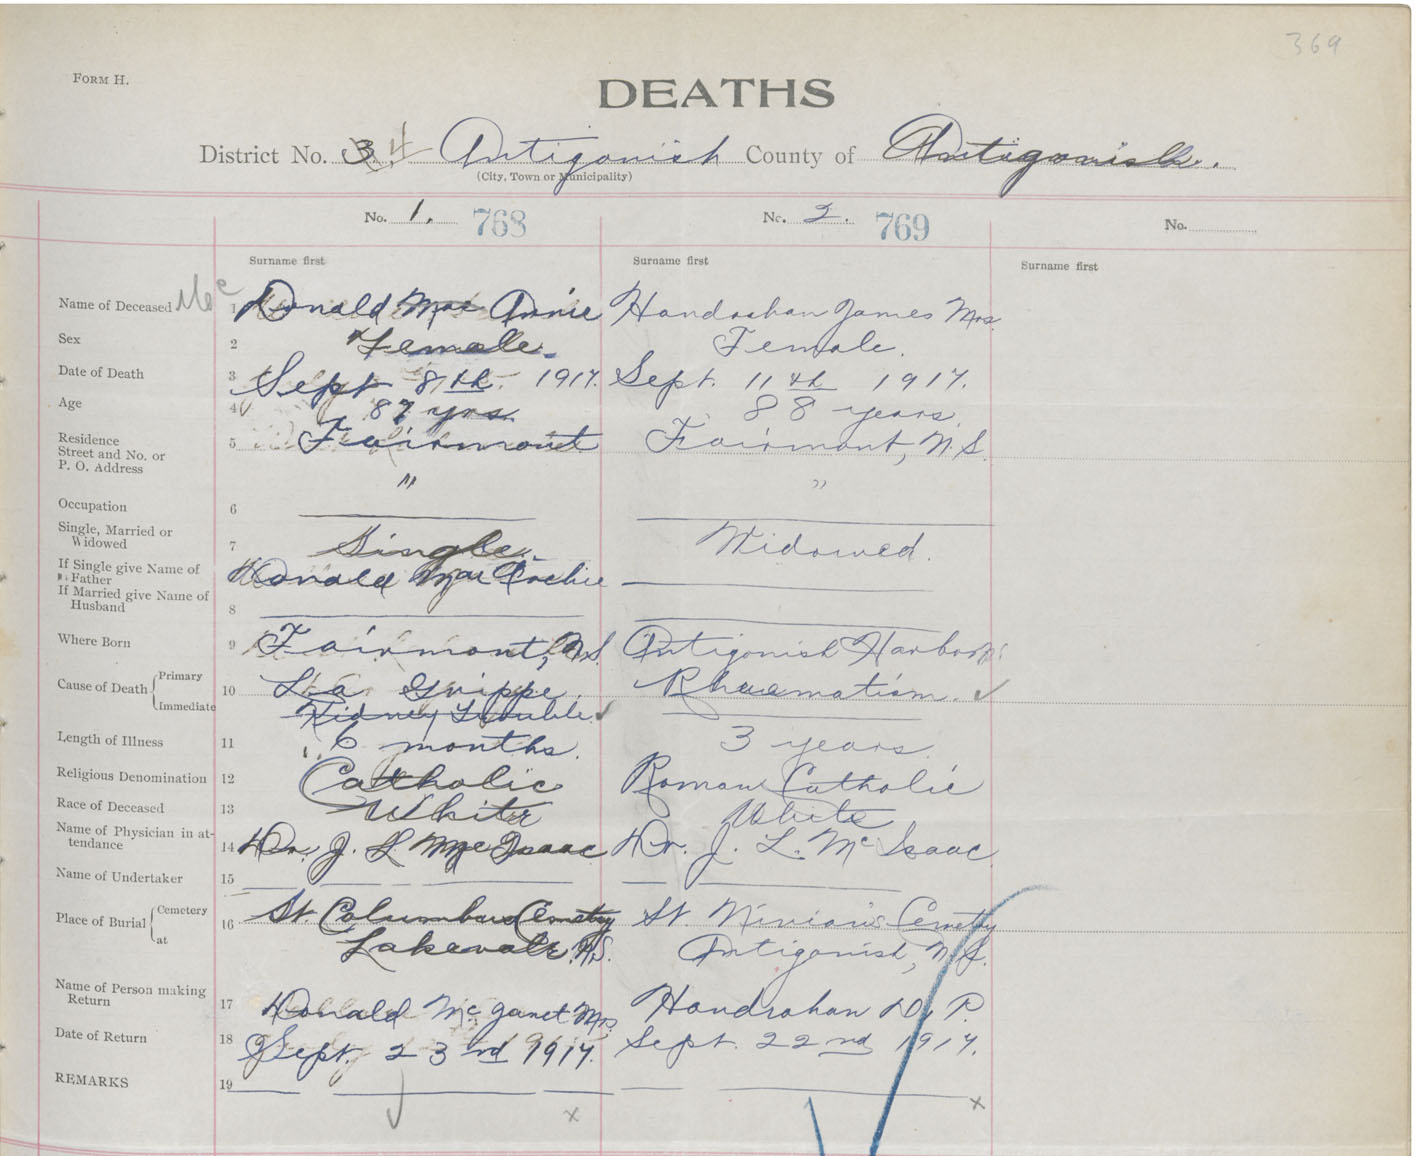 369
FORM H.
DEATHS
District No. 3. 4 Antigonish County of Antigonish.
(City, Town or Municipality)
No. 1. 768 No. 2. 769 No.
Surname first Surname first Surname first
Name of Deceased Mc 1 Donald Mac Annie Handrahan James Mrs.
Sex 2 Female. Female.
Date of Death 3 Sept 8th. 1917. Sept. 11th 1917.
Age 4 87 yrs. 88 years.
Residence Street and No. or P. O. Address 5 Fairmont Fairmont, N.S.
" "
Occupation 6
Single, Married or Widowed 7 Single. Widowed.
If Single give Name of Father Donald Mac
If Married give Name of Husband 8
Where Born 9 Fairmont, N.S. Antigonish Harbor
Cause of Death { Primary 10 La Grippe. Rhuematism. ✓
Immediate Kidney Trouble. ✓
Length of Illness 11 6 months. 3 years.
Religious Denomination 12 Catholic Roman Catholic
Race of Deceased 13 White White
Name of Physician in attendance 14 Dr. J. L. McIsaac Dr. J. L. McIsaac
Name of Undertaker 15
Place of Burial { Cemetery 16 St Columbas Cemetry St. Ninian's Cemetry
at Lakevale N.S. Antigonish, N.S.
Name of Person making Return 17 Donald Mc Janet Mrs. Handrahan D. P.
Date of Return 18 Sept. 23rd 1917. Sept. 22nd 1917.
REMARKS 19
x x